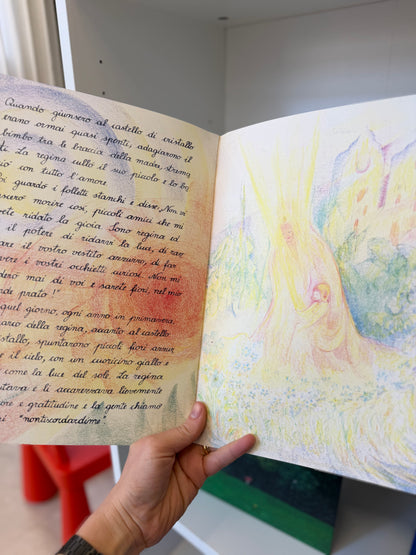 Quando giunsero al castello di cristallo
erano ormai quasi spenti, adagiarono il
bimbo tra le braccia della madre,
La regina cullò il suo piccolo e lo
con tutto l'amore.
guardò i folletti stanchi e disse, Non vi
morire così, piccoli amici che mi
ridato la gioia. Sono regina ed
il potere di ridarvi la luce, di
il vostro vestito azzurro, di far
i vostri occhietti curiosi. Non mi
mai di voi e sarete fiori, nel mio
prato!"
quel giorno, ogni anno in primavera,
della regina, quanto al castello
spuntarono piccoli fiori azzurri
il cielo, con un cuoricino giallo e
come la luce del sole. La regina
e li accarezzava lievemente
e gratitudine e la gente chiamò
"nontiscordardime".